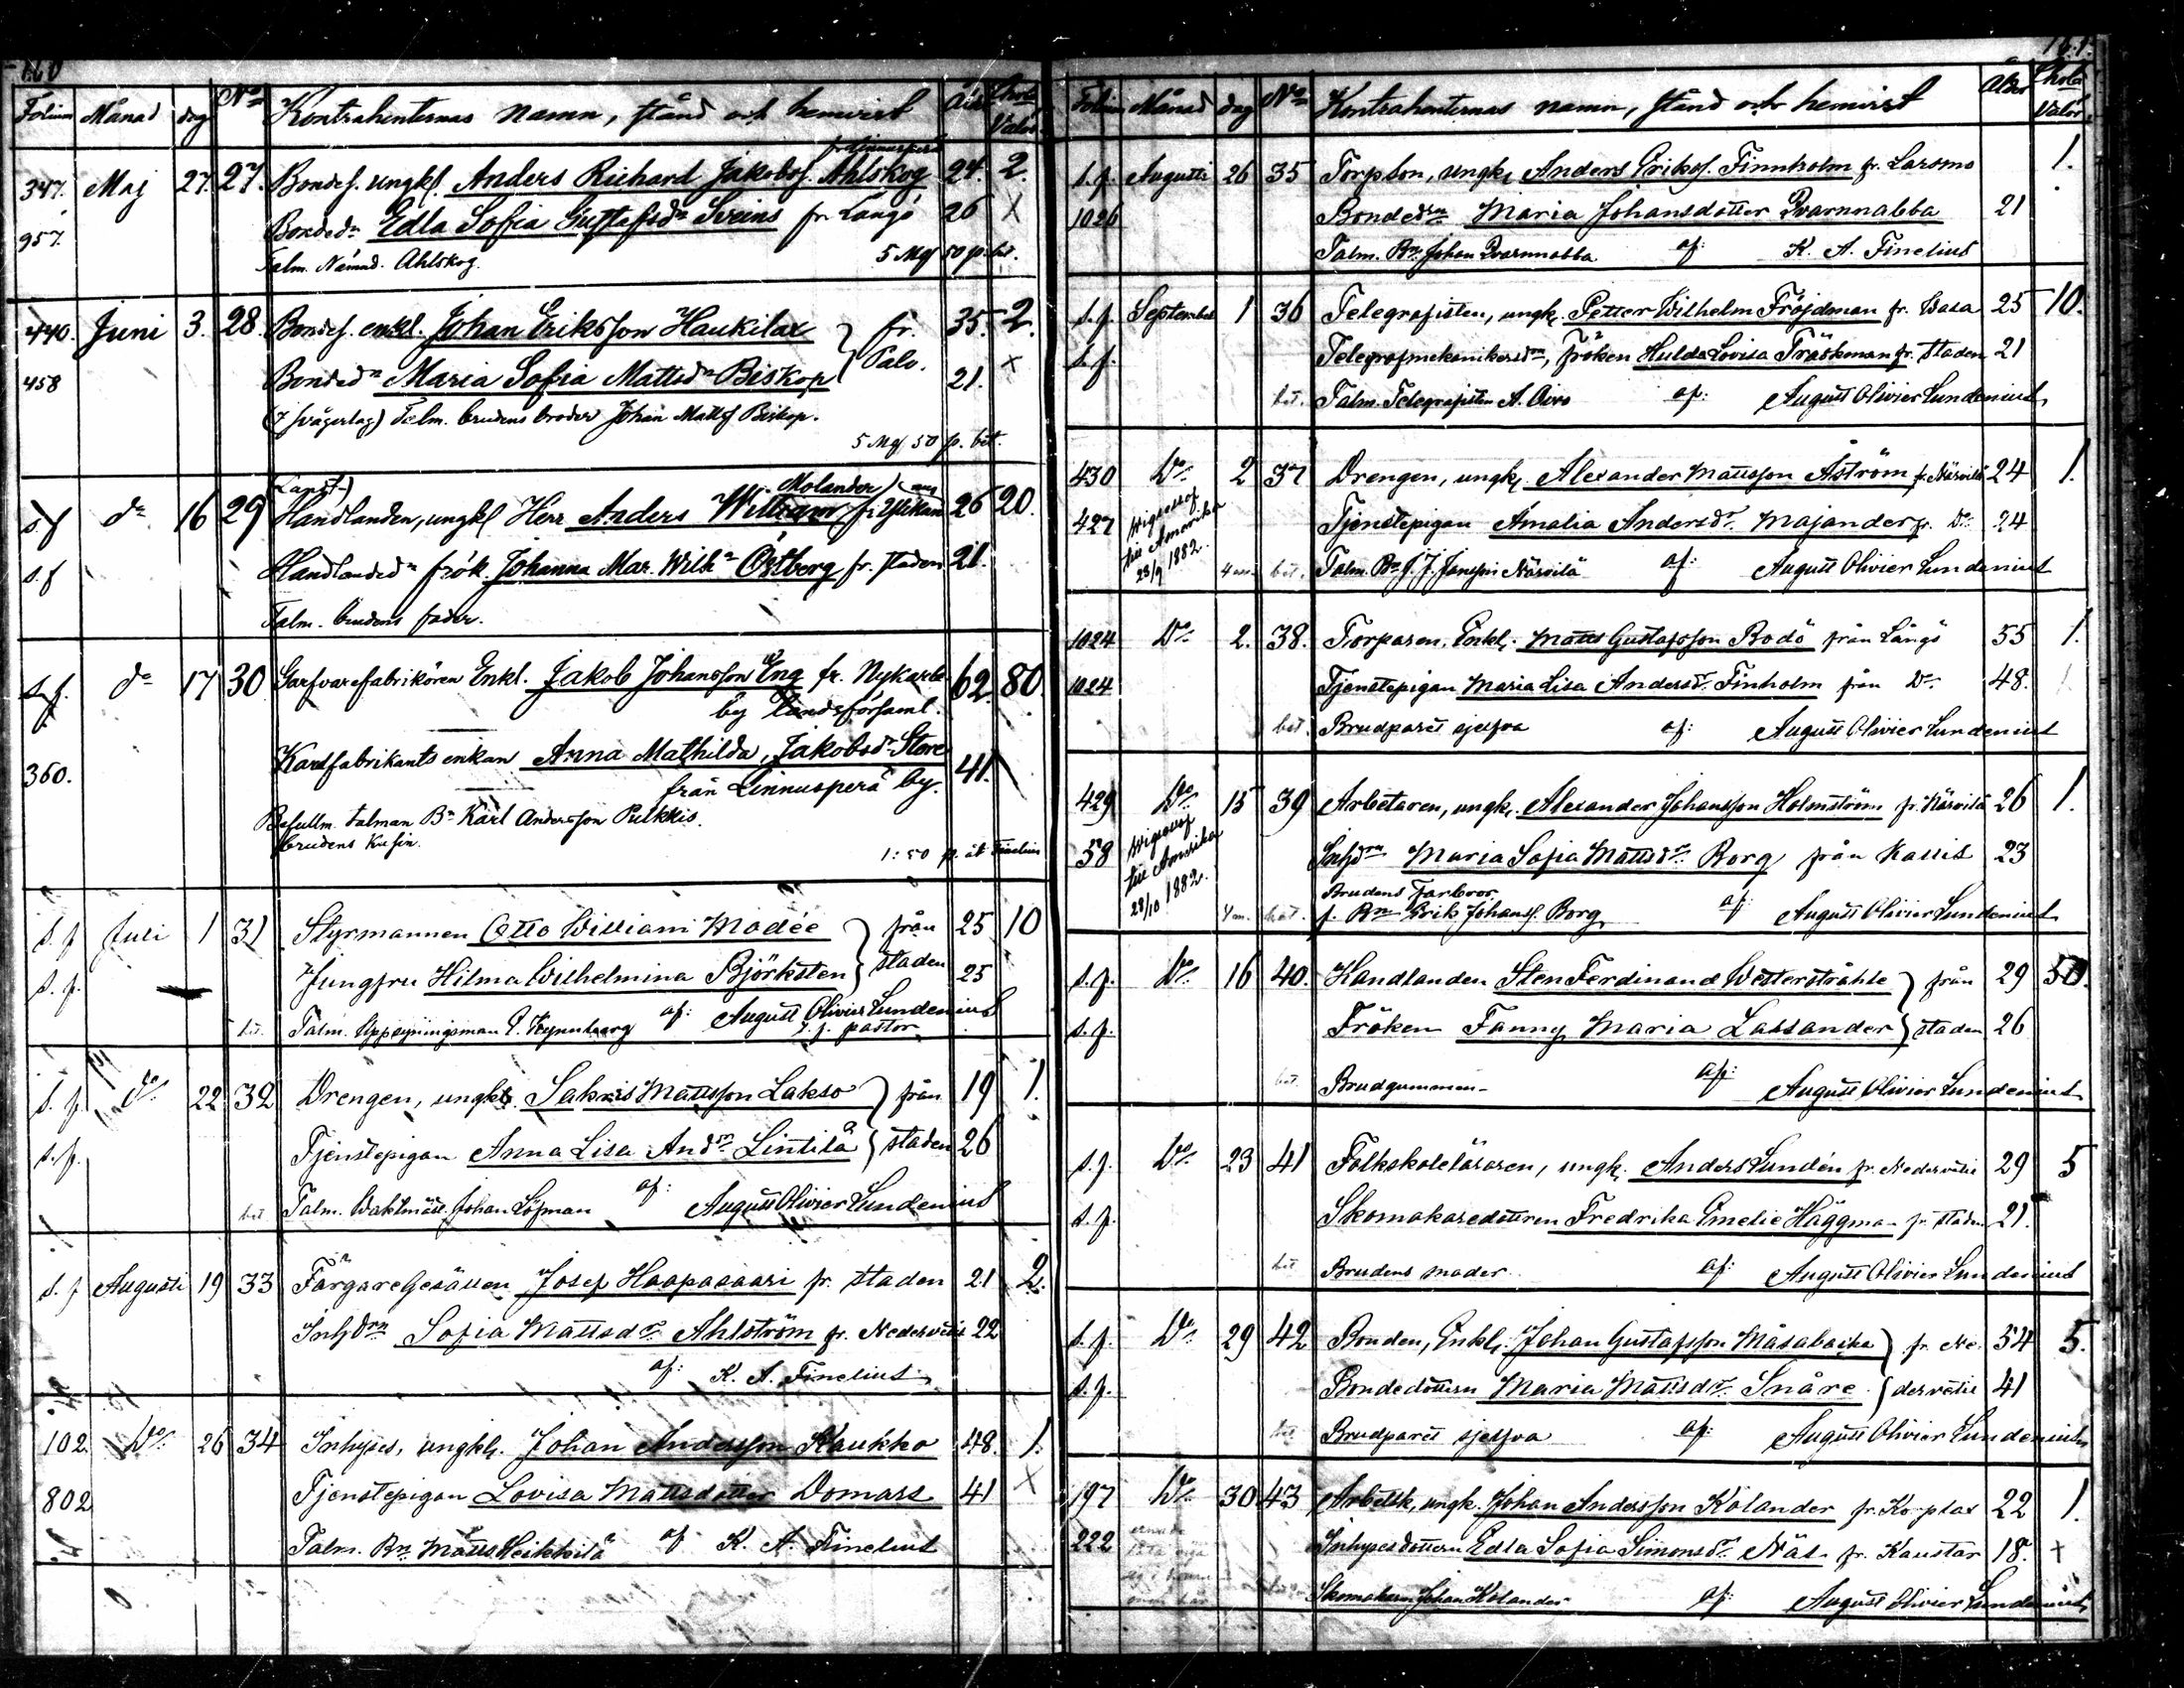 160
Folium Månad dag No Kontrahenternas namn, stånd och hemvist Ålder Valör
fr Linnusperä
347. Maj 27. 27. Bondes. ungk. Anders Richard Jakobs. Ahlskog 24. 2.
957. Bonded:r Edla Sofia Gustafsd:r Sveins fr. Långö 26 X
Talm. Nämnd. Ahlskog. 5 Mk 50 p. bet.
440. Juni 3. 28. Bondes. enkl. Johan Eriksson Haukilax } fr. 35. 2.
458 Bonded:r Maria Sofia Mattsd:r Biskop } Palo. 21. X
(I svågerlag) Talm. brudens broder Johan Matts. Biskop.
5 Mk 50 p. bet.
Molander
s.f. d:o 16 29 Handlanden, ungk. Herr Anders William 26 20.
s.f. Handlanded:r frök. Johanna Mar. Wilh:a Östberg fr. staden 21.
Talm. brudens fader.
s.f. d:o 17 30 Garfvarefabrikören Enkl. Jakob Johansson Eng fr. Nykarle 62. 80.
by landsförsaml.
360. Kardfabrikants enkan Anna Mathilda, Jakobsd. Store 41.
från Linnusperä by.
Befullm. talman B:n Karl Andersson Pulkkis.
brudens kusin.
1:50 p. åt Finelius
s.f. Juli 1 31 Styrmannen Otto William Modée } från 25 10
s.f. Jungfru Hilma Wilhelmina Björksten } staden 25
bet. Talm. Uppsyningsman af: August Olivier Lundenius
pastor
s.f. d:o 22 32 Drengen, ungk. Sakris Mattsson Lakso } från 19 1.
s.f. Tjenstepigan Anna Lisa And:r Lintilä } staden 26
bet. Talm. Waktmäst. Johan Löfman af: August Olivier Lundenius
s.f. Augusti 19 33 Färgaregesällen Josef Haapasaari fr. staden 21 2.
Inh.d:rn Sofia Mattsd:r Ahlström fr. Nedervetil 22
af: K. A. Finelius
102 D:o 26 34 Inhyses, ungk. Johan Andersson Kaukko 48. 1.
802 Tjenstepigan Lovisa Mattsdotter Domars 41 X
Talm. Bn. Matts Heikkilä af K. A. Finelius
161.
Folium Månad dag No Kontrahenternas namn, stånd och hemvist Ålder Valör
s.f. Augusti 26 35 Torpson, ungk. Anders Eriks. Finnholm fr. Larsmo 1.
1026 Bonded:rn Maria Johansdotter Qvarnnabba 21
Talm. Bn. Johan Qvarnnabba af: K. A. Finelius
s.f. September 1 36 Telegrafisten, ungk. Petter Wilhelm Fröjdman fr. Wasa 25 10.
s.f. Telegrafmekanikersd:rn, fröken Hulda Lovisa Träskman fr. staden 21
bet. Talm. Telegrafisten A. af: August Olivier Lundenius
430 D:o 2 37 Drengen, ungk. Alexander Mattsson Åström fr. Närvilä 24 1.
427 till Amerika Tjenstepigan Amalia Andersd:r Majander fr. D:o 24
23/9 1882. bet. Talm. Bn. J. J. Jansson Närvilä af: August Olivier Lundenius
1024 D:o 2. 38. Torparen, Enkl. Matts Gustafsson Bodö från Långö 55 1.
1024 Tjenstepigan Maria Lisa Andersd:r Finholm från D:o 48.
bet. Brudparet sjelfva af: August Olivier Lundenius
429 D:o 15 39 Arbetaren, ungk. Alexander Johansson Holmström fr. Närvilä 26 1.
58 till Amerika Inh.d:rn Maria Sofia Mattsd:r Borg från Kallis 23
28/10 1882. Brudens farbror
bet. f. Bn. Erik Johans. Borg af: August Olivier Lundenius
s.f. D:o 16 40. Handlanden Sten Ferdinand Westerstråhle } från 29 50.
s.f. Fröken Fanny Maria Lassander } staden 26
bet. Brudgummen af: August Olivier Lundenius
s.f. D:o 23 41 Folkskoleläraren, ungk. Anders Lundén fr. Nedervetil 29 5
s.f. Skomakaredottren Fredrika Emelie Häggman fr. staden 21.
bet Brudens moder af: August Olivier Lundenius
s.f. D:o 29 42 Bonden, Enkl. Johan Gustafsson Måsabacka } fr. Ne- 54 5.
s.f. Bondedottern Maria Mattsd:r Snåre } dervetil 41
bet. Brudparet sjelfva af: August Olivier Lundenius
197 D:o 30 43 Arbetsk., ungk. Johan Andersson Kolander fr. Korplax 22 1.
222 Inhysesdottern Edla Sofia Simonsd:r Näs fr. Kaustar 18. +
Skomakaren Johan Kolander af: August Olivier Lundenius